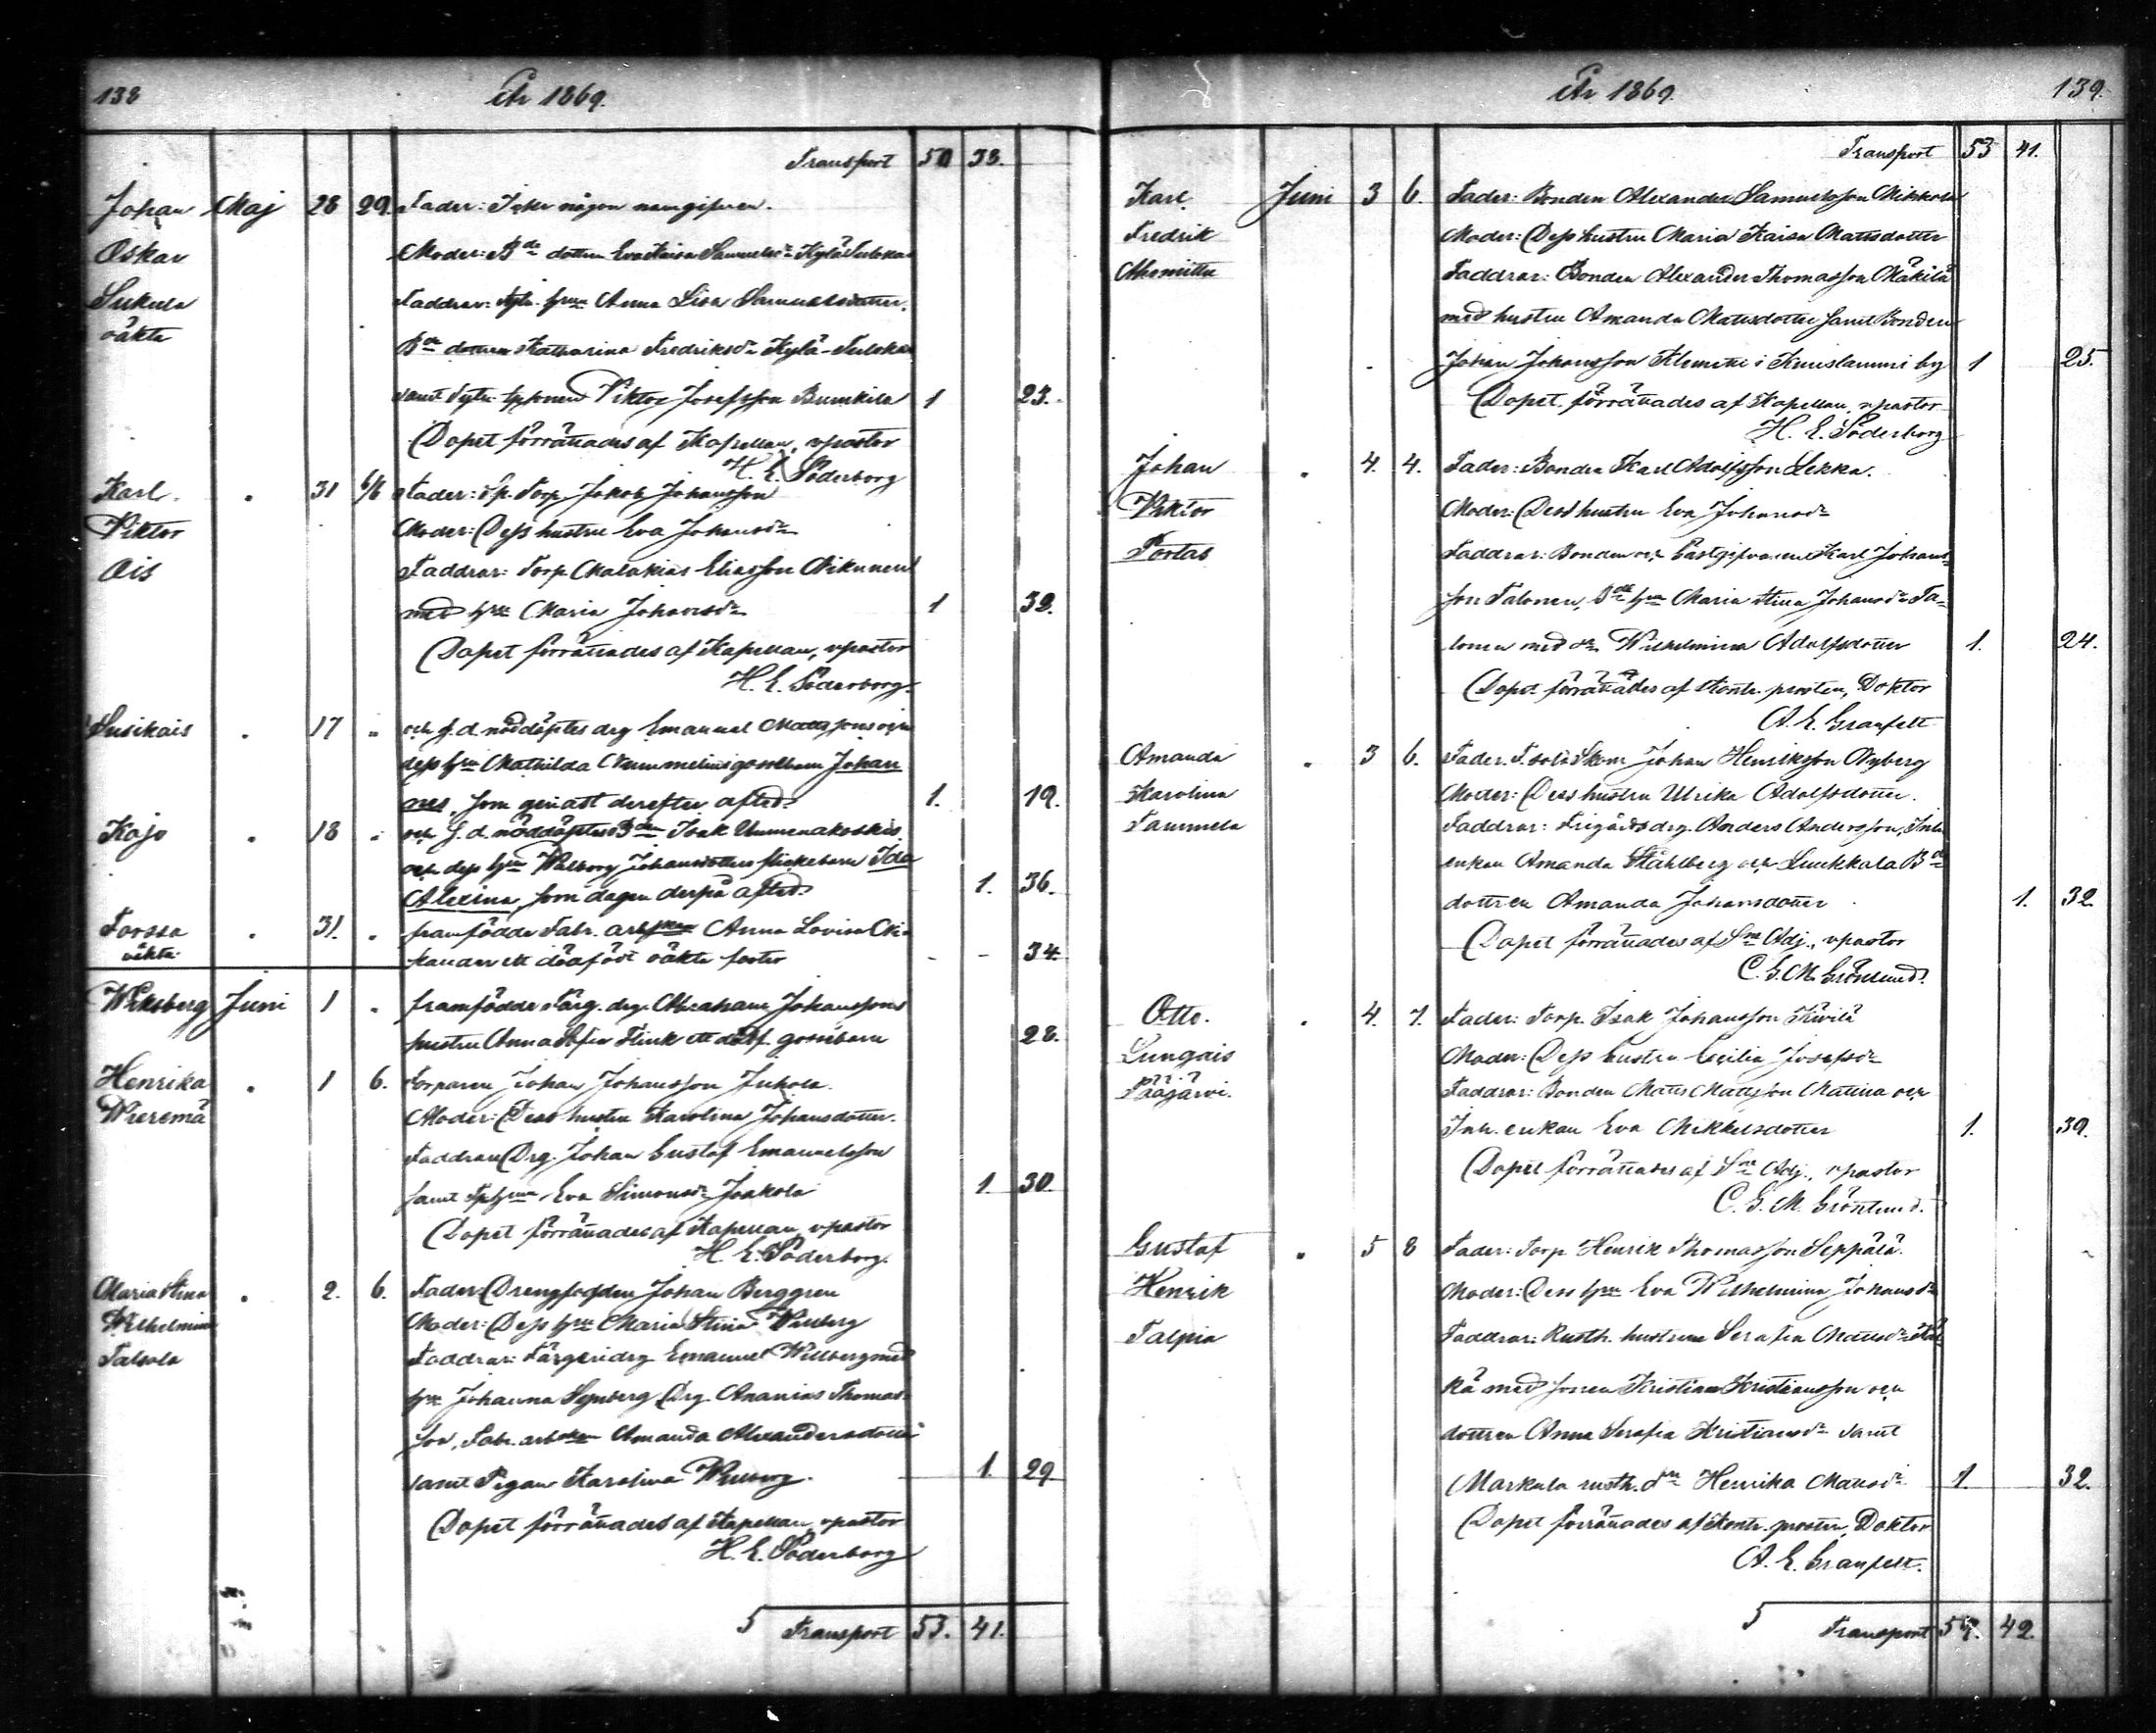 138
År 1869.
Transport 50 38.
Johan Maj 28 29. Fader: Icke någon
Oskar Moder: Bde dottern Eva Kaisa Samuelsdr
Sukula Faddrar: hru Anna Lisa Samuelsdotter.
oäkta Bde dottern Katharina Fredriksdr Kylä-
samt Viktor Josefsson 1 23.
Dopet förrättades af Kapellan, vpastor
H. E. Söderborg
Karl. " 31 6/6 Fader: Sp. Torp. Jakob Johansson
Viktor Moder: Dess hustru Eva Johansdr
Ois Faddrar: Torp. Malakias Eliasson Nikunen
med hru Maria Johansdr 1 39.
Dopet förrättades af Kapellan, vpastor
H. E. Söderborg.
Susikais " 17 " och f. d. nöddöptes drg Emanuel Mattssons och
dess hru Mathilda gossebarn Johan
nes, som genast derefter afled. 1. 19.
Kojo " 18 " och f. d. nöddöptes Bden Isak
och dess hru Walborg Johansdotters flickebarn Ida
Alexina, som dagen derpå afled. 1. 36.
Forssa " 31. " framfödde Fabr. arb. Anna Lovisa
oäkta ett dödfödt oäkta foster - - 34.
Wiksberg Juni 1 " framfödde Färg. drg. Abraham Johanssons
hustru Anna Sofia Flink ett dödf. gossebarn 28.
Henrika " 1 6. Torparen Johan Johansson Juhola.
Wieremä Moder: Dess hustru Karolina Johansdotter.
Faddrar Drg. Johan Gustaf Emanuelsson
samt Eva Simonsdr Jaakola 1. 30.
Dopet förrättades af Kapellan, vpastor
H. E. Söderborg.
Maria Stina " 2. 6. Fader: Johan Berggren
Wilhelmina Moder: Dess hru Maria Stina
Talsola Faddrar: Färgeridrg Emanuel med
hru Johanna Drg. Ananias Thomas-
son, Fabr. arb. Amanda Alexandersdotter
samt Pigan Karolina 1. 29.
Dopet förrättades af Kapellan, vpastor
H. E. Söderborg
5 Transport 53. 41.
År 1869.
139.
Transport 53 41.
Karl Juni 3 6. Fader: Bonden Alexander Samuelsson
Fredrik Moder: Dess hustru Maria Kaisa Mattsdotter
Faddrar: Bonden Alexander Thomasson Mäkilä
med hustru Amanda Mattsdotter samt Bonden
Johan Johansson i by 1 25.
Dopet förrättades af Kapellan, vpastor
H. E. Söderborg
Johan " 4. 4. Fader: Bonden Karl Adolfsson Lekka.
Viktor Moder: Dess hustru Eva Johansdr
Portas Faddrar: Bonden och Gästgifvaren Karl Johans-
son Talonen, hru Maria Stina Johansdr Ta-
lonen med dr Wilhelmina Adolfsdotter 1. 24.
Dopet förrättades af Kontr. prosten, Doktor
A. E. Granfelt
Amanda " 3 6. Fader. Skom. Johan Henriksson Nyberg
Karolina Moder: Dess hustru Ulrika Adolfsdotter.
Tammela Faddrar: drg. Anders Andersson, Inh.
enkan Amanda Ståhlberg och Luukkala Bde
dottren Amanda Johansdotter 1. 32.
Dopet förrättades af Adj., vpastor
C. G. M. Grönlund.
Otto. " 4. 7. Fader: Torp. Isak Johansson Kivilä
Lungais Moder: Dess hustru Cecilia Josefsdr
Pääjärvi. Faddrar: Bonden Matts Mattsson och
Inh. enkan Eva Mikkelsdotter 1. 39.
Dopet förrättades af Adj., vpastor
C. G. M. Grönlund.
Gustaf " 5 8 Fader: Torp Henrik Thomasson Seppälä.
Henrik Moder: Dess hru Eva Wilhelmina Johansdr
Talpia Faddrar: Rusth. hustrun Serafia Mattsdr
kä med sonen Kristian Kristiansson och
dottren Anna Serafia Kristiansdr samt
Markula rusth. drn Henrika Mattsdr 1. 32.
Dopet förrättades af Kontr. prosten, Doktor
A. E. Granfelt.
5 Transport 57. 42.